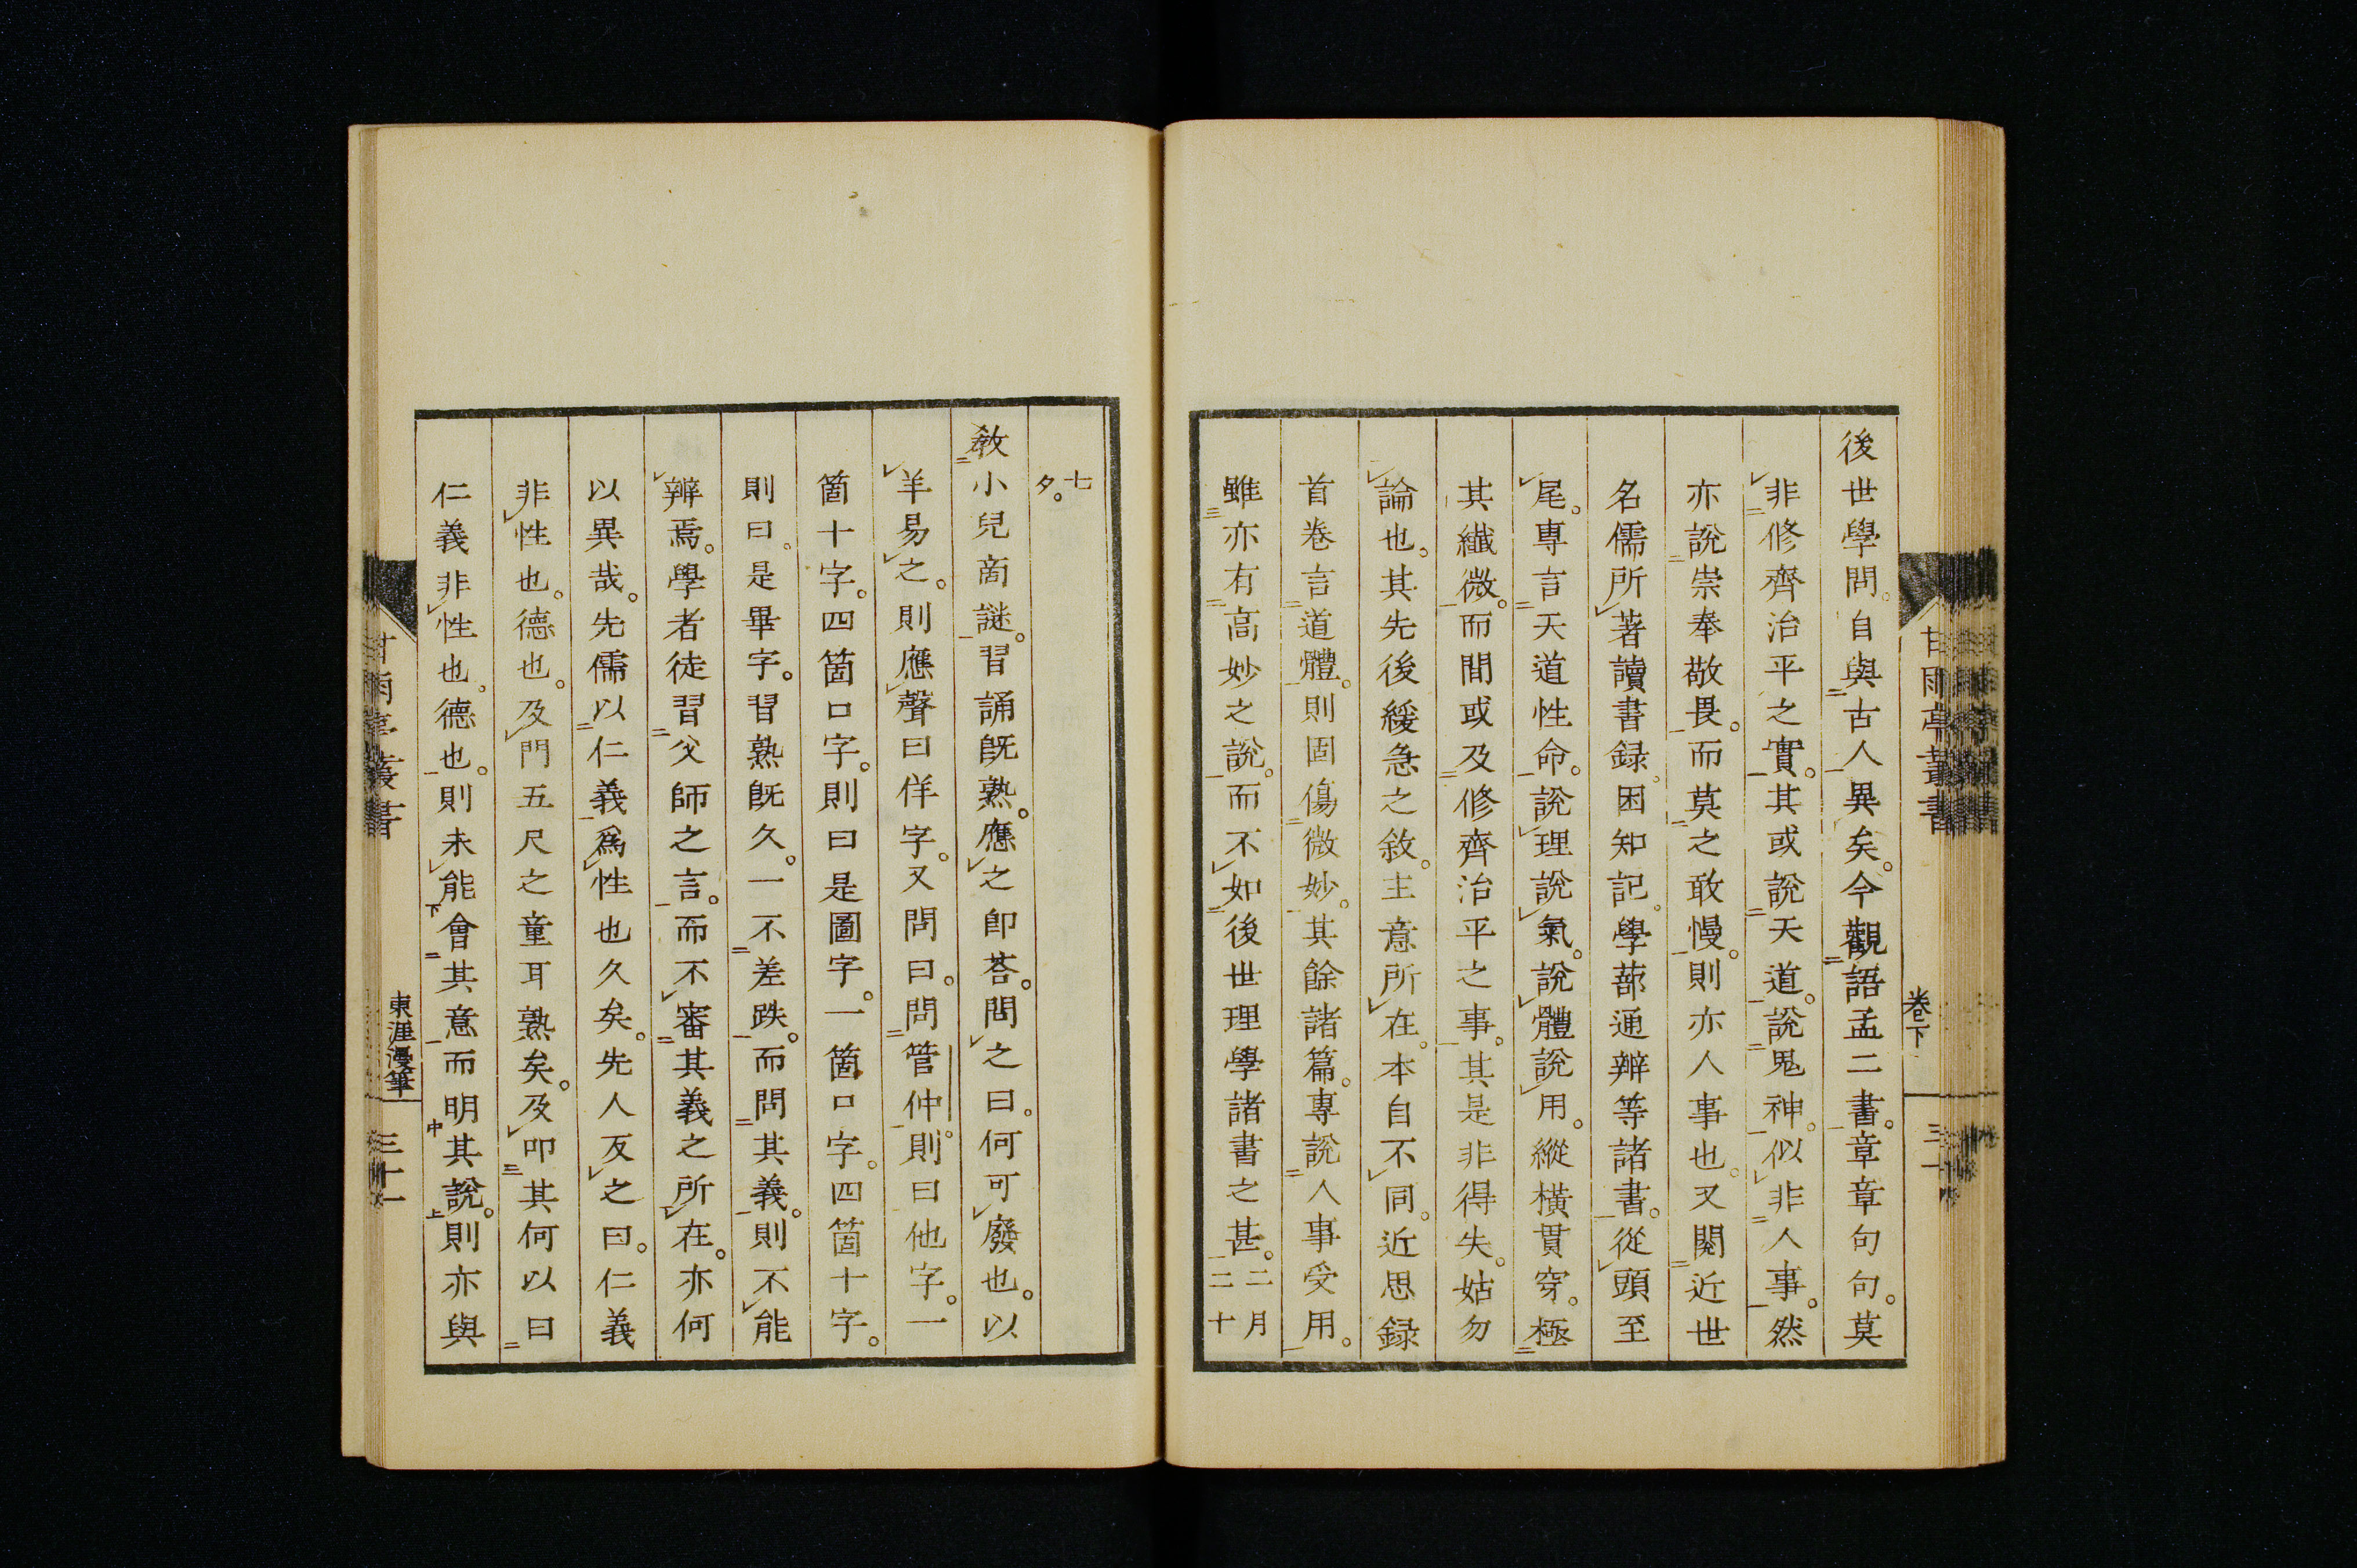 後世學問。自與古人異矣。今觀語孟二書。章章句句。莫
非修齊治平之實。其或說天道。說鬼神。似非人事。然
亦說崇奉敬畏。而莫之敢慢。則亦人事也。又閱近世
名儒所著讀書録。困知記。學蔀通辨等諸書。從頭至
尾。專言天道性命。說理說氣。說體說用。縱橫貫穿。極
其纖微。而間或及修齊治平之事。其是非得失。姑勿
論也。其先後緩急之敘。主意所在。本自不同。近思録
首卷言道體。則固傷微妙。其餘諸篇。專說人事受用。
雖亦有高妙之說。而不如後世理學諸書之甚。二月
二十
甘雨亭叢書
卷下
三十
七
夕。
教小兒啇謎。習誦既熟。應之即荅。問之曰。何可廢也。以
羊易之。則應聲曰佯字。又問曰。問管仲。則曰他字。一
箇十字。四箇口字。則曰是圖字。一箇口字。四箇十字。
則曰。是畢字。習熟既久。一不差跌。而問其義。則不能
辨焉。學者徒習父師之言。而不審其義之所在。亦何
以異哉。先儒以仁義爲性也久矣。先人反之曰。仁義
非性也。德也。及門五尺之童耳熟矣。及叩其何以曰
仁義非性也。德也。則未能會其意而明其說。則亦與
甘雨亭叢書
東涯漫筆
三十一